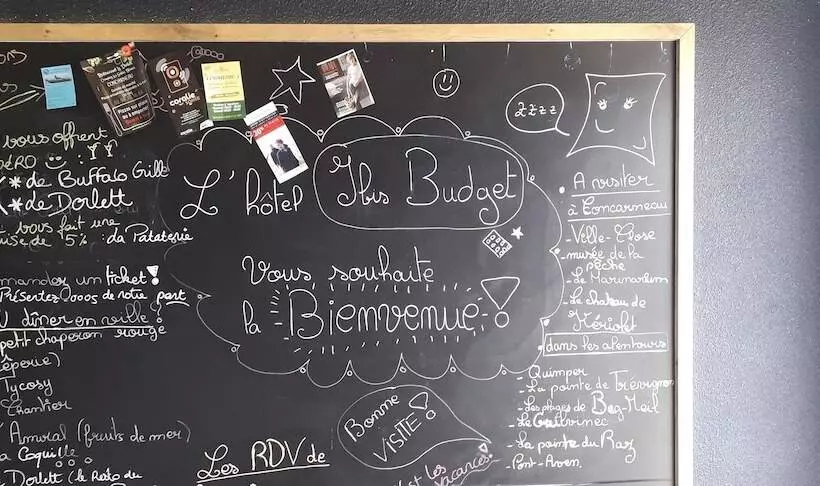 vous offent
de Buffalo Grill
de Dorlett
vous fait une
de 5% : da Pataterie
un ticket !
Présentez de notre part
dîner en ville !
petit chaperon rouge
Tycosy
Chantier
Amiral (fruits de mer)
Coquille
Dorlett (le Resto du
coralie
L'hôtel Ibis Budget
Vous souhaite
la Bienvenue !
Bonne
VISITE !
Les RDV de
les
vacances !
zzzz
A visiter
à Concarneau
- Ville-Close
- musée de la
pêche
- Le Marinarium
- Le chateau de
Kériolet
dans les alentours
- Quimper
- La pointe de Trévignon
- Les plages de Beg-Meil
- Le Guilvinec
- La pointe du Raz
- Pont-Aven.